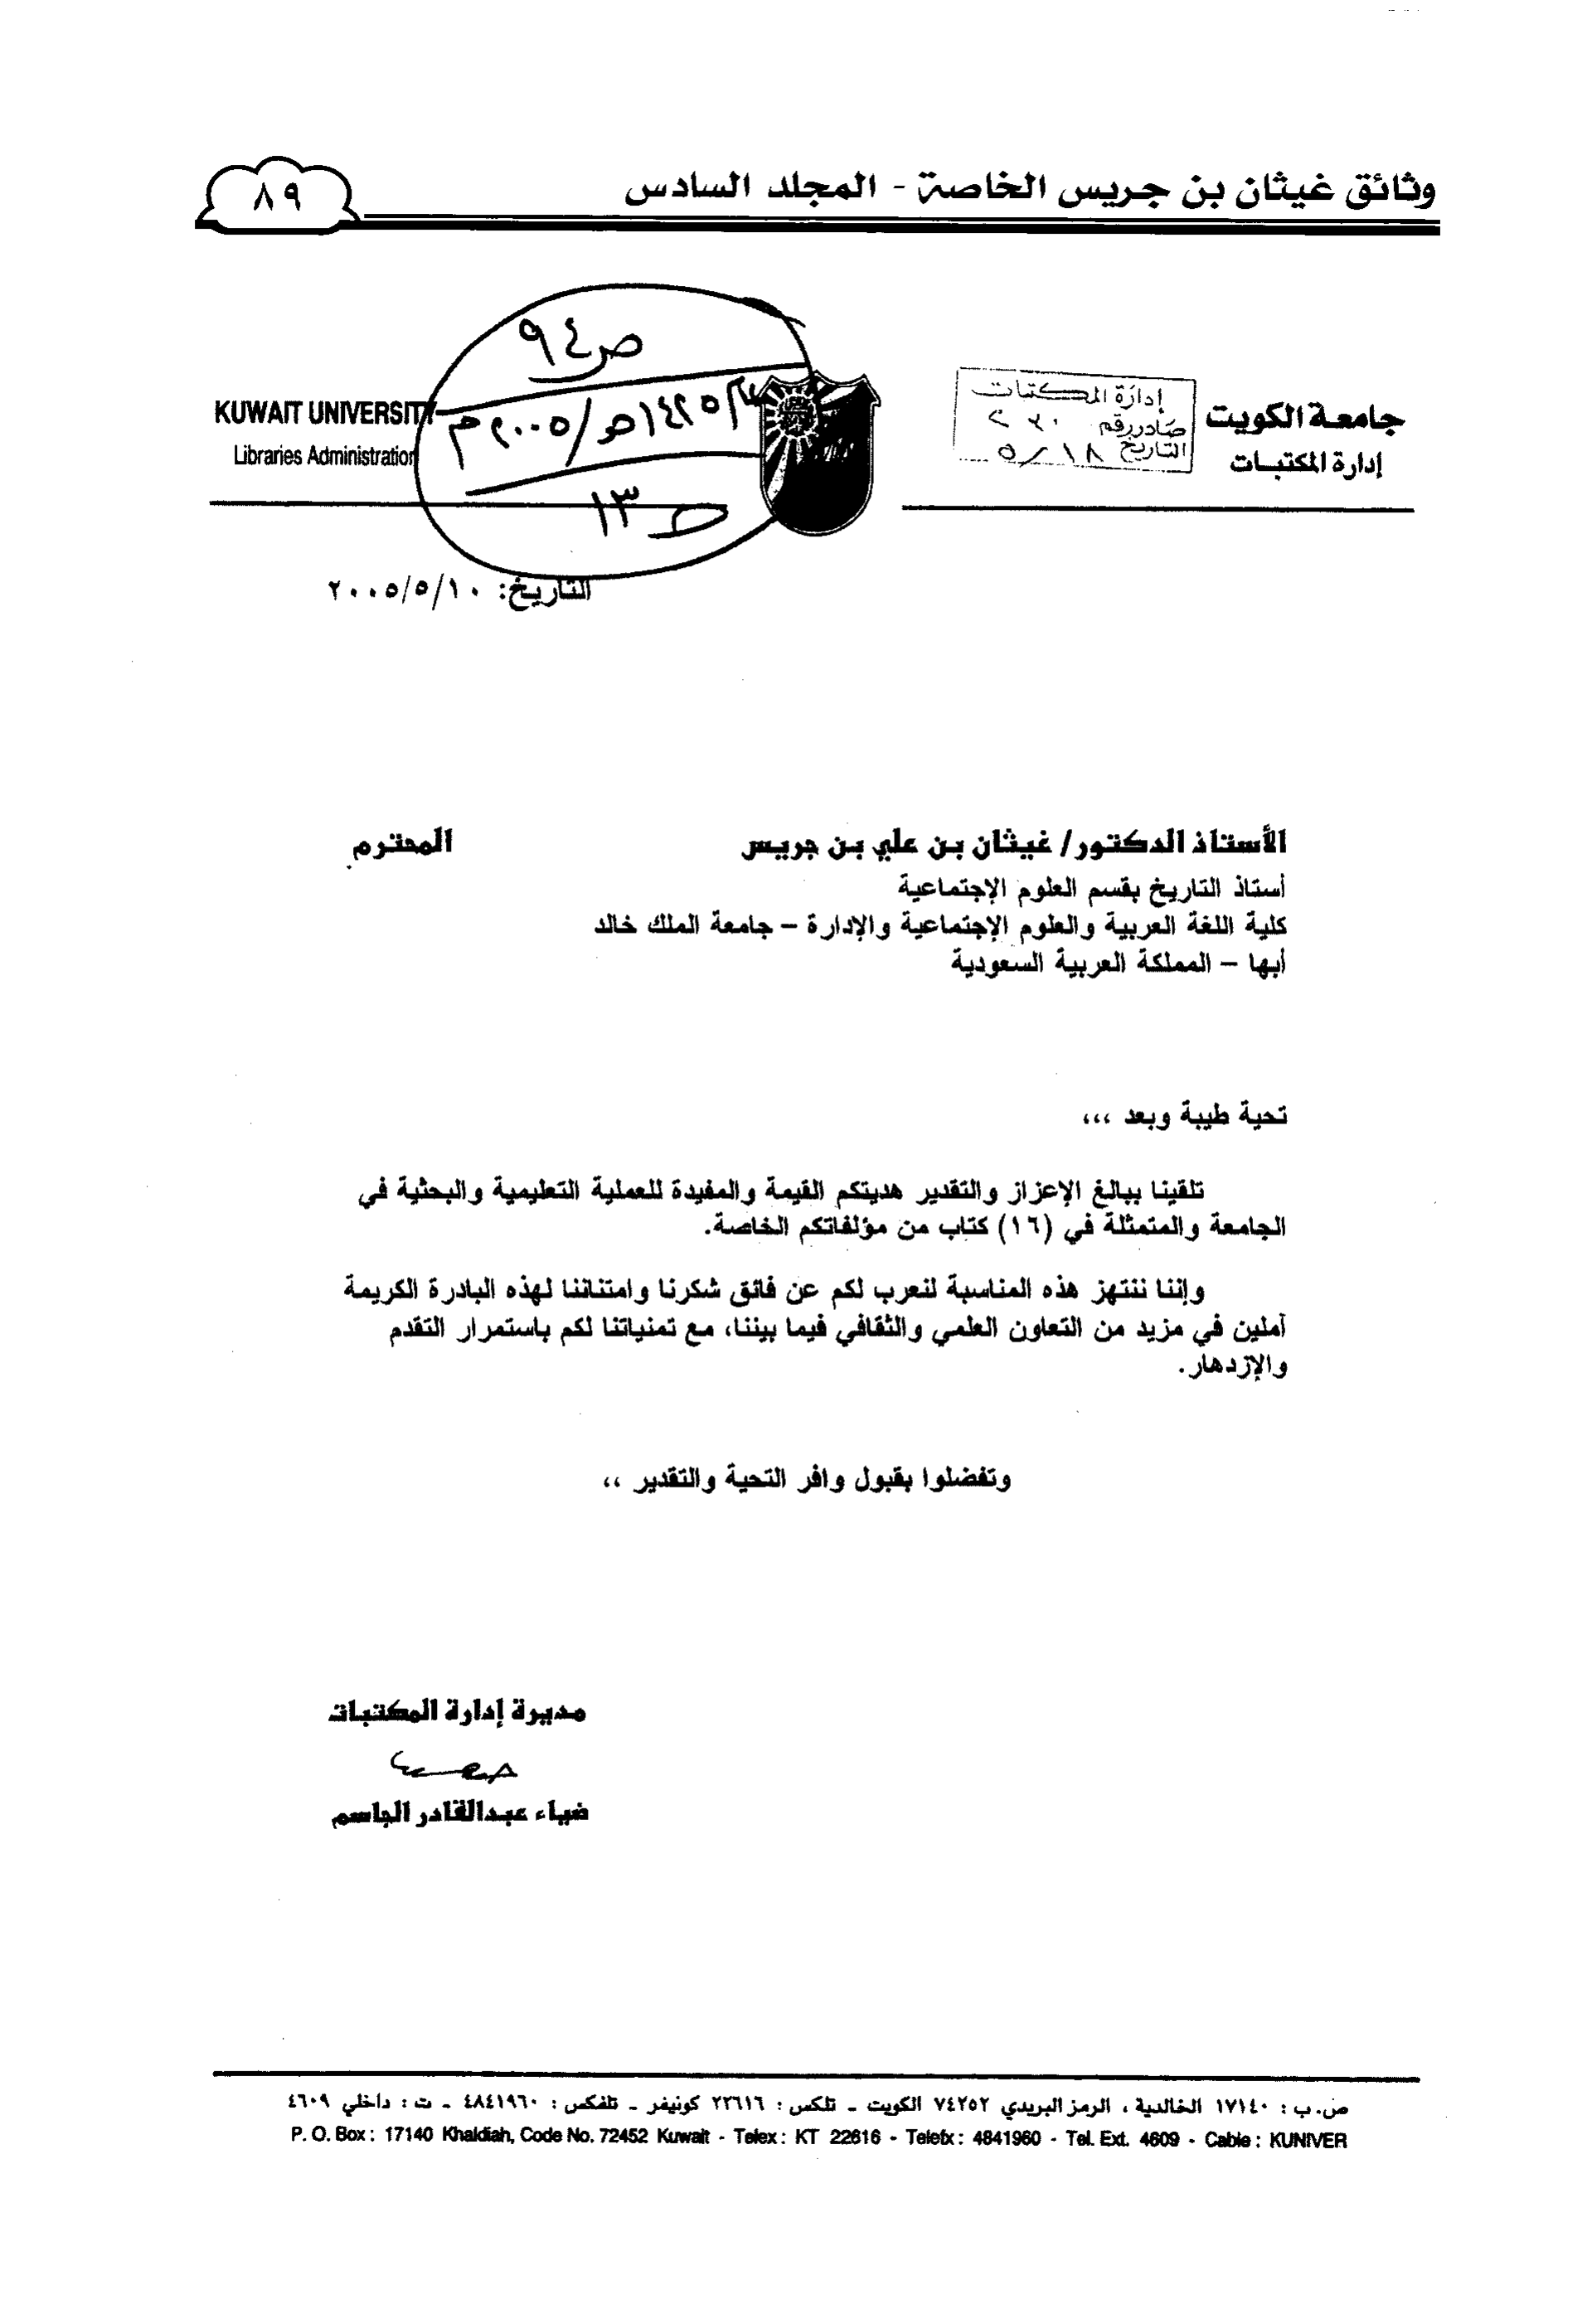 وثائق غيثان بن جريس الخاصة - المجلد السادس
٨٩
جامعة الكويت
إدارة المكتبات
إدارة المكتبات
صادر رقم
التاريخ ١٨/٥
ص٩٤
١٤٢٥هـ/٢٠٠٥م
ط١٣
KUWAIT UNIVERSITY
Libraries Administration
التاريخ: ٢٠٠٥/٥/١٠
الأستاذ الدكتور/ غيثان بن علي بن جريس المحترم
أستاذ التاريخ بقسم العلوم الإجتماعية
كلية اللغة العربية والعلوم الإجتماعية والإدارة – جامعة الملك خالد
أبها – المملكة العربية السعودية
تحية طيبة وبعد ،،،
تلقينا ببالغ الإعزاز والتقدير هديتكم القيمة والمفيدة للعملية التعليمية والبحثية في
الجامعة والمتمثلة في (١٦) كتاب من مؤلفاتكم الخاصة.
وإننا ننتهز هذه المناسبة لنعرب لكم عن فائق شكرنا وامتناننا لهذه البادرة الكريمة
آملين في مزيد من التعاون العلمي والثقافي فيما بيننا، مع تمنياتنا لكم باستمرار التقدم
والإزدهار.
وتفضلوا بقبول وافر التحية والتقدير ،،
مديرة إدارة المكتبات
ضياء عبدالقادر الجاسم
ص.ب : ١٧١٤٠ الخالدية ، الرمز البريدي ٧٤٢٥٢ الكويت ـ تلكس : ٢٢٦١٦ كونيفر ـ تلفكس : ٤٨٤١٩٦٠ ـ ت : داخلي ٤٦٠٩
P. O. Box : 17140 Khaldiah, Code No. 72452 Kuwait - Telex : KT 22616 - Telefx : 4841960 - Tel. Ext. 4609 - Cable : KUNIVER